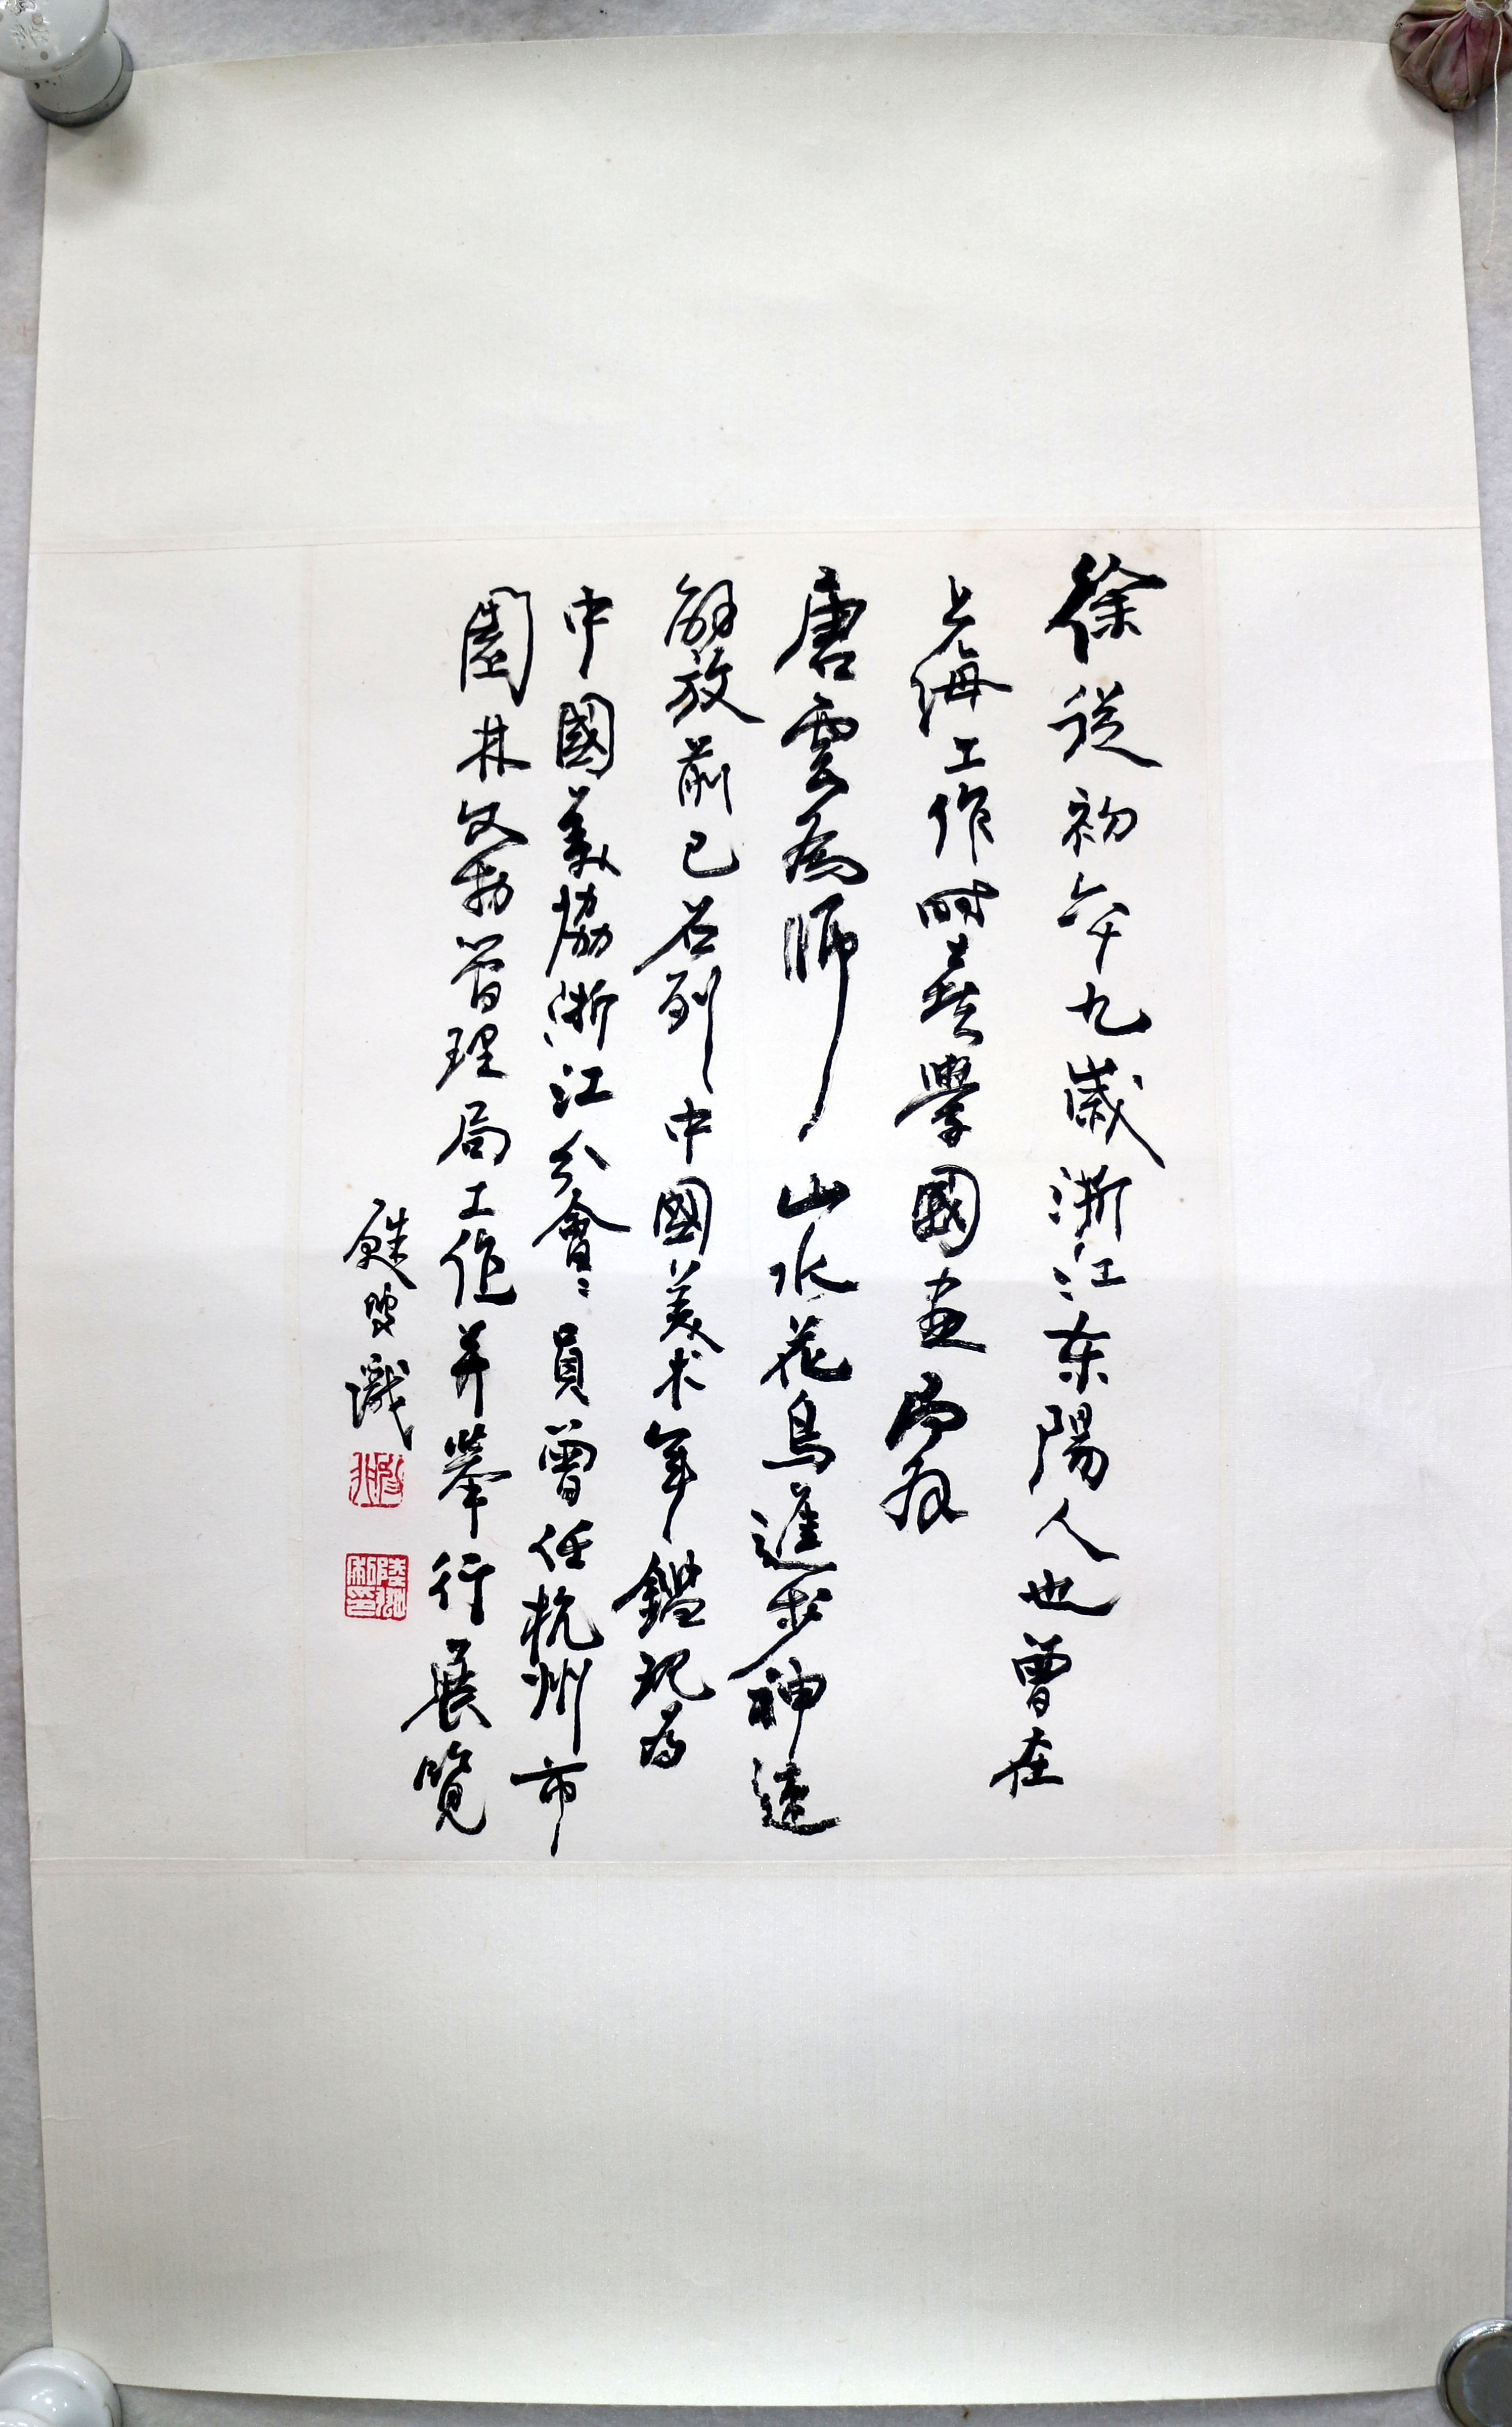 徐從初年九歲浙江东陽人也曾在
上海工作時喜學國畫
唐雲為師山水花鳥進步神速
解放前已名列中國美术年鑑現为
中國美協浙江分會〻員曾任杭州市
園林文物管理局工作并舉行展覽
識